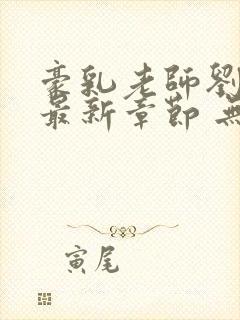 豪乳老師劉
最新章節 無
寅尾